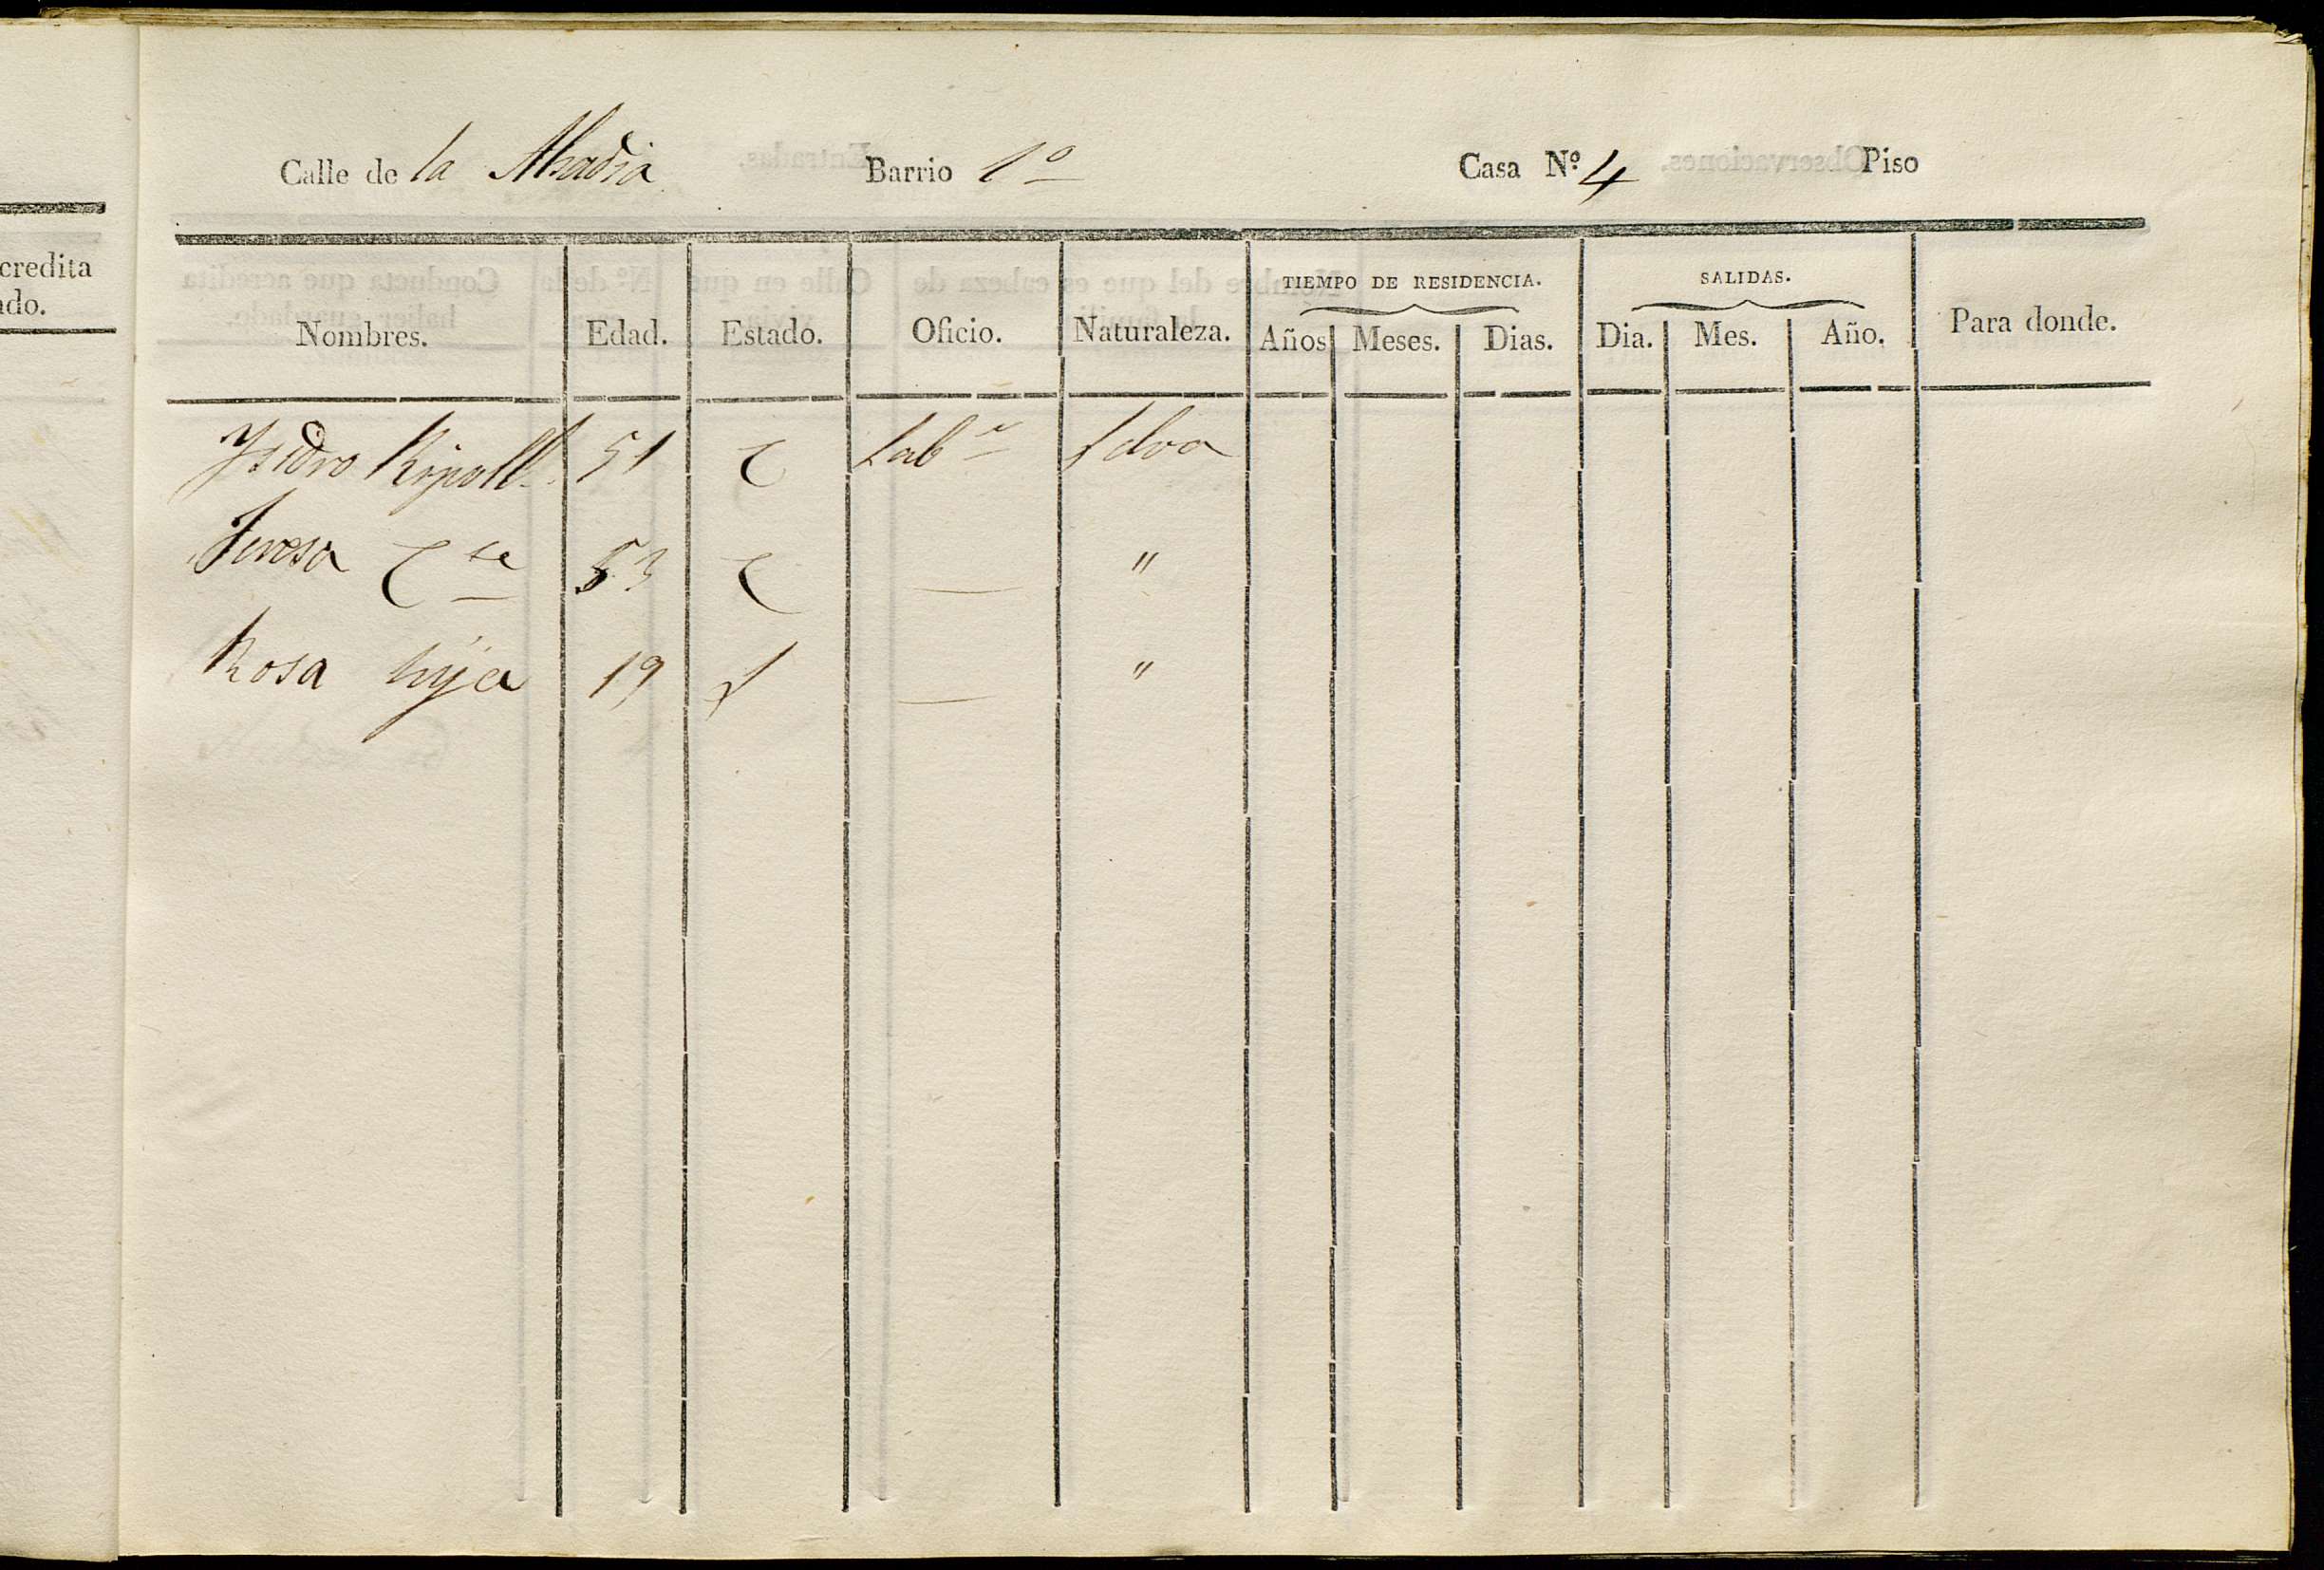 credita
do.
Calle de la Abadia Barrio 1º Casa Nº 4 Piso
TIEMPO DE RESIDENCIA. SALIDAS.
Nombres. Edad. Estado. Oficio. Naturaleza. Años Meses. Dias. Dia. Mes. Año. Para donde.
Ysidro Ripoll 51 C Labr
Teresa Cte 53 C — "
Rosa hija 19 S — "